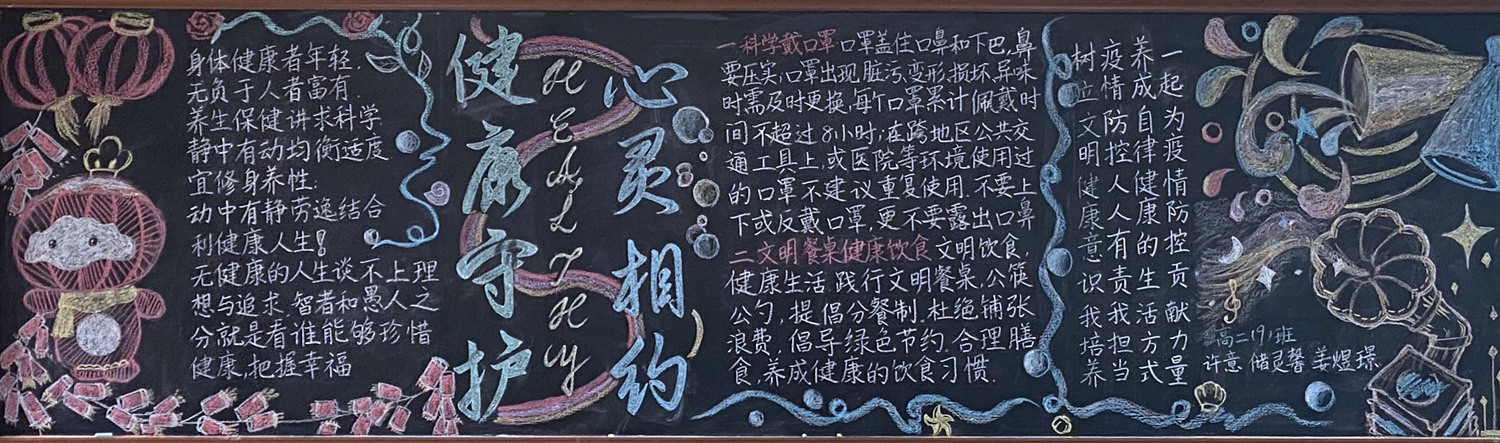 身体健康者年轻,
无负于人者富有.
养生保健讲求科学
静中有动均衡适度
宜修身养性;
动中有静劳逸结合
利健康人生!
无健康的人生谈不上理
想与追求.智者和愚人之
分就是看谁能够珍惜
健康,把握幸福
健康守护
HEALTHy
心灵相约
一科学戴口罩 口罩盖住口鼻和下巴,鼻
要压实,口罩出现脏污,变形,损坏,异味
时需及时更换,每个口罩累计佩戴时
间不超过8小时;在跨地区公共交
通工具上,或医院等环境使用过
的口罩不建议重复使用.不要上
下或反戴口罩,更不要露出口鼻
二文明餐桌健康饮食 文明饮食,
健康生活,践行文明餐桌,公筷
公勺,提倡分餐制.杜绝铺张
浪费.倡导绿色节约.合理膳
食,养成健康的饮食习惯.
树立文明健康意识我培养
疫情防控人人有责我担当
养成自律健康的生活方式
一起为疫情防控贡献力量
高二(9)班
许意 储灵馨 姜煜璟